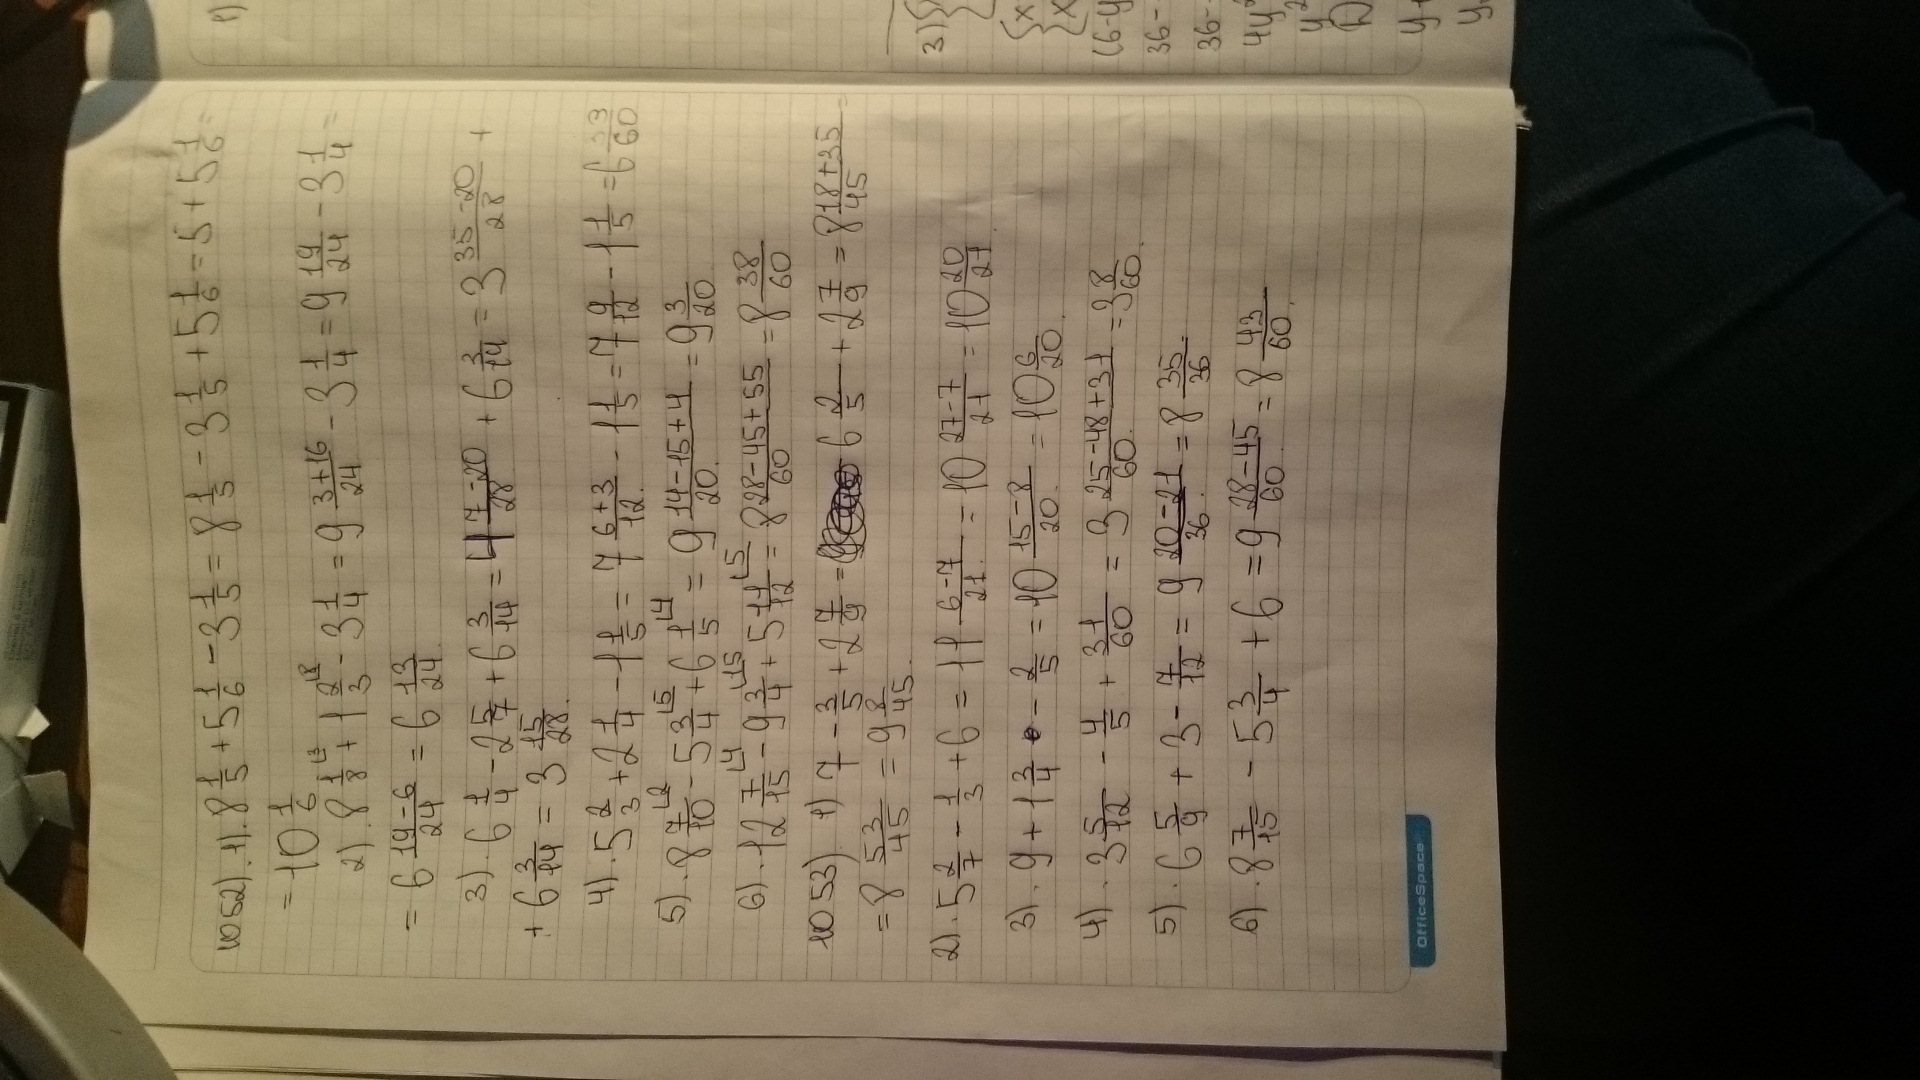 1052). 1). 8 1/5 + 5 1/6 - 3 1/5 = 8 1/5 - 3 1/5 + 5 1/6 = 5 + 5 1/6 =
= 10 1/6
2). 8 1/8 + 1 2/3 - 3 1/4 = 9 (3+16)/24 - 3 1/4 = 9 19/24 - 3 1/4 =
= 6 (19-6)/24 = 6 13/24
3). 6 1/4 - 2 5/7 + 6 3/14 = 4 (7-20)/28 + 6 3/14 = 3 (35-20)/28 +
+ 6 3/14 = 3 15/28.
4). 5 2/3 + 2 1/4 - 1 1/5 = 7 (6+3)/12 - 1 1/5 = 7 9/12 - 1 1/5 = 6 33/60
5). 8 7/10 - 5 3/4 + 6 1/5 = 9 (14-15+4)/20 = 9 3/20
6). 12 7/15 - 9 3/4 + 5 11/12 = 8 (28-45+55)/60 = 8 38/60
1053). 1) 7 - 3/5 + 2 7/9 = 6 2/5 + 2 7/9 = 8 (18+35)/45 =
= 8 53/45 = 9 8/45.
2). 5 2/7 - 1/3 + 6 = 11 (6-7)/21 = 10 (27-7)/21 = 10 20/21
3). 9 + 1 3/4 - 2/5 = 10 (15-8)/20 = 10 6/20
4). 3 5/12 - 4/5 + 31/60 = 3 (25-48+31)/60 = 3 8/60
5). 6 5/9 + 3 - 7/12 = 9 (20-21)/36 = 8 35/36
6). 8 7/15 - 5 3/4 + 6 = 9 (28-45)/60 = 8 43/60.
OfficeSpace
1)
3)
x
x
(6-y
36-
36-
4y²
y²
D
y
y